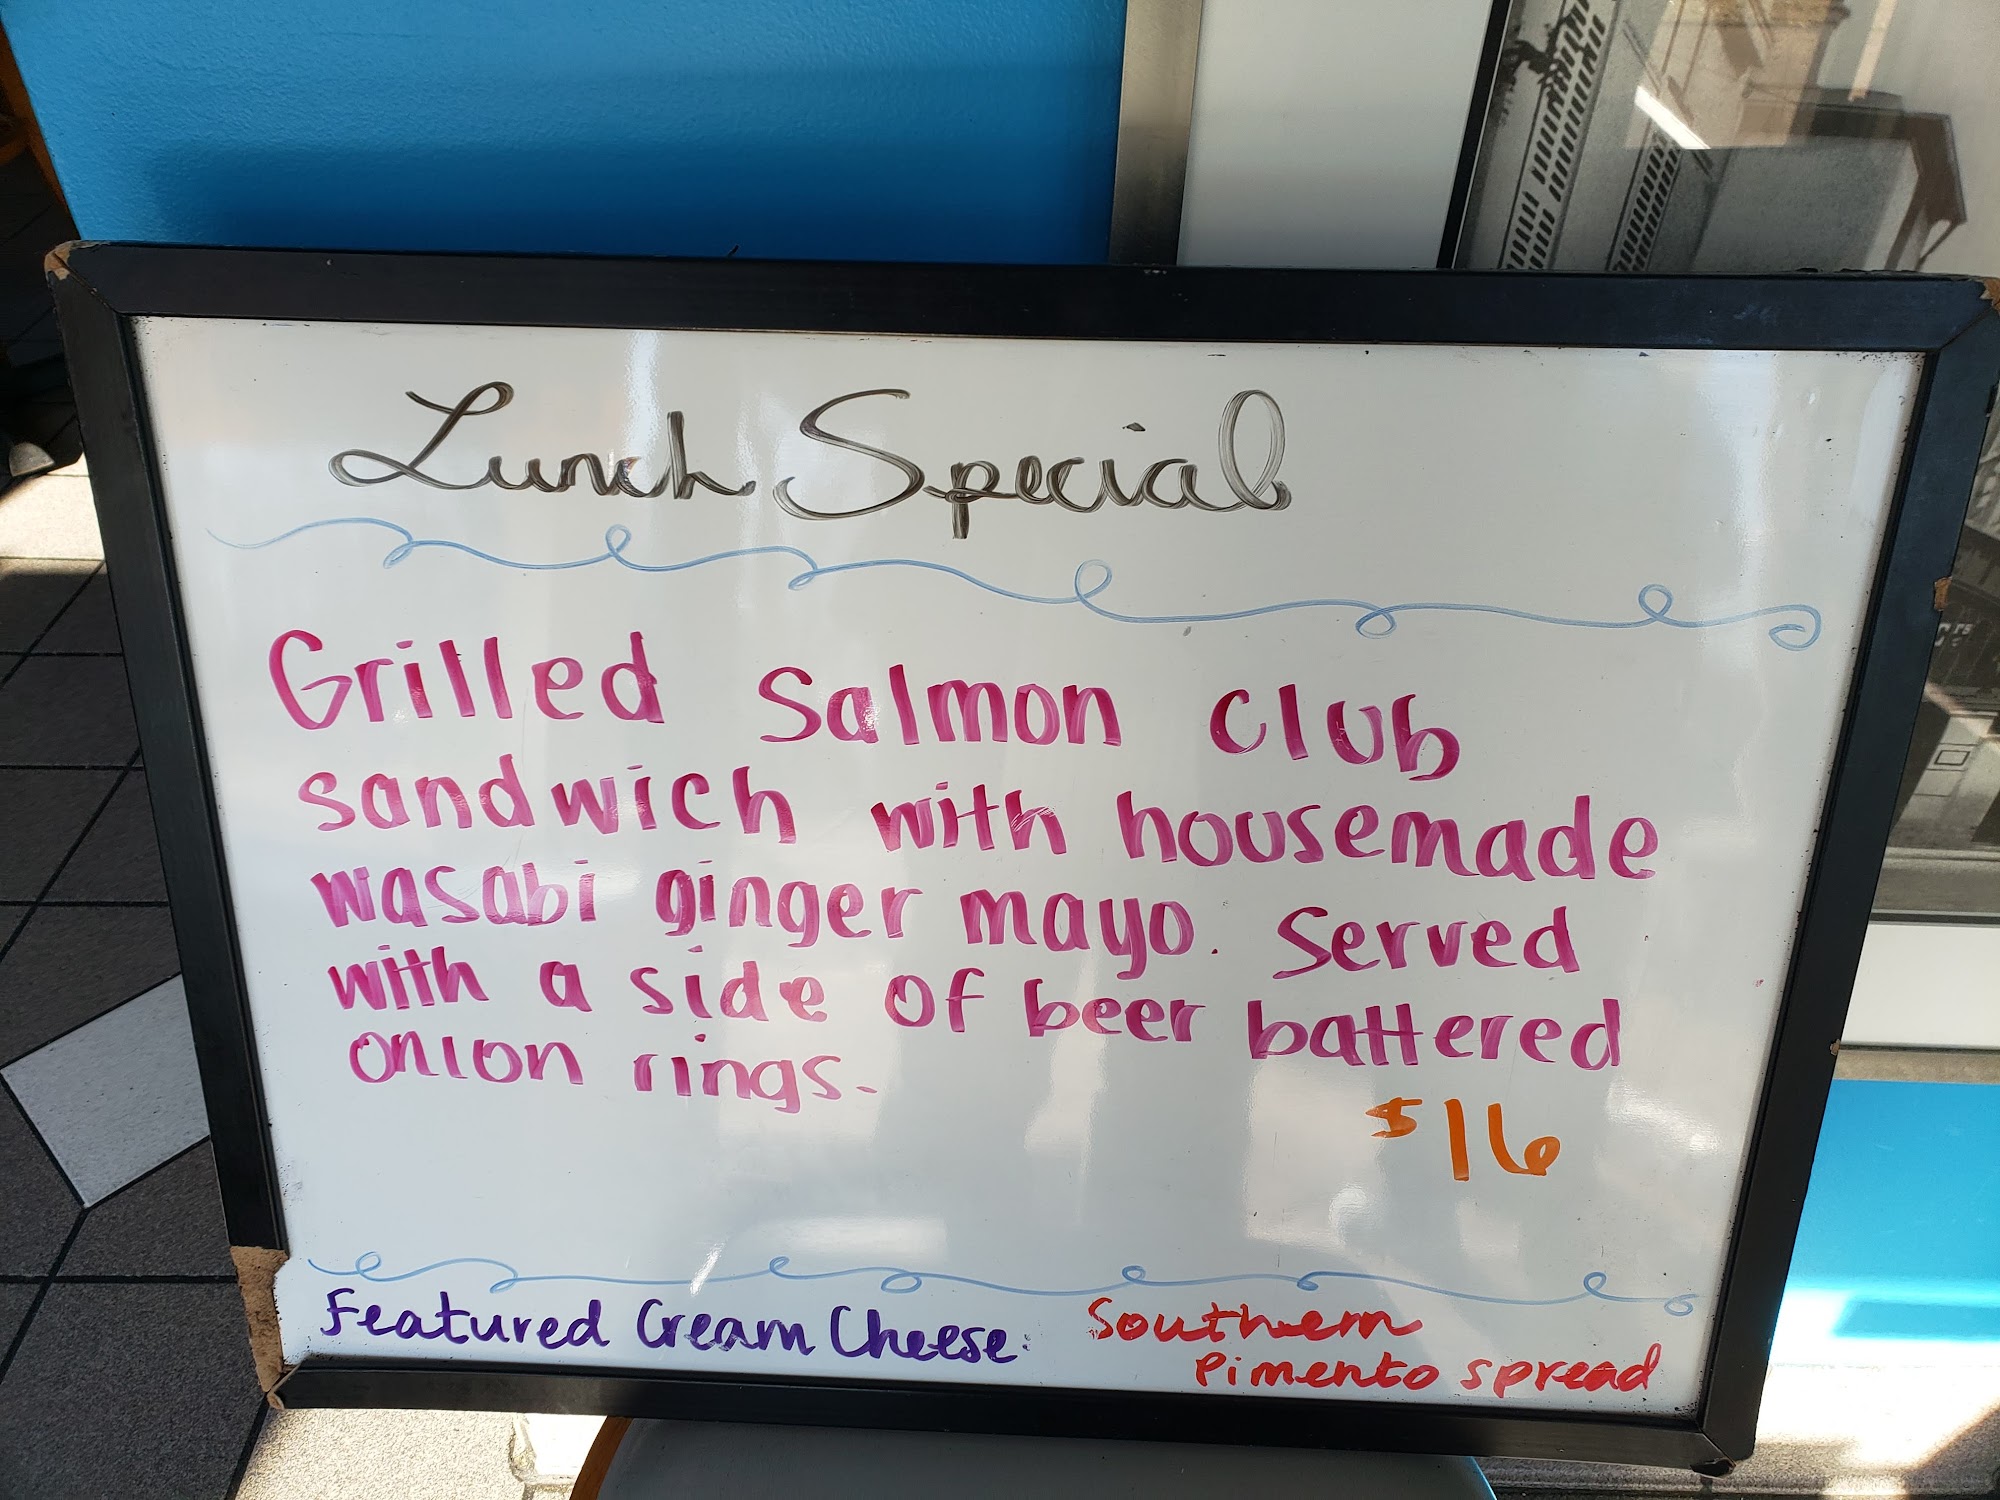 Lunch Special
Grilled Salmon club
sandwich with housemade
wasabi ginger mayo. Served
with a side of beer battered
onion rings.
$16
Featured Cream Cheese: Southern
Pimento spread